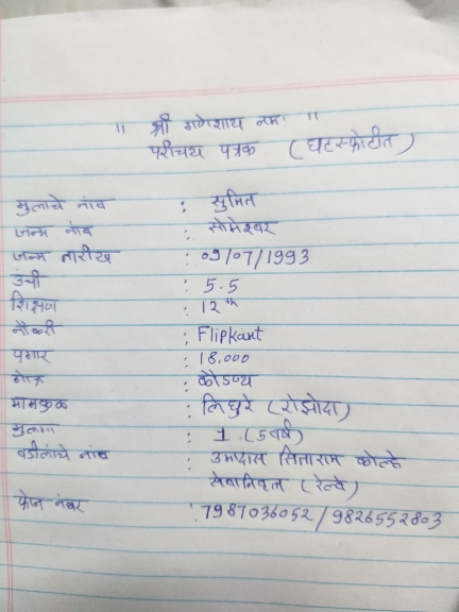 " श्री गणेशाय नमः "
परीचय पत्रक (घटस्फोटीत)
मुलाचे नांव : सुमित
जन्म नांव : सोमेश्वर
जन्म तारीख : 09/07/1993
उंची : 5.5
शिक्षण : 12th
नौकरी : Flipkart
पगार : 18,000
गोत्र : कौडण्य
मामकुळ : लिधुरे (रोझोदा)
मुलगा : 1 (5 वर्ष)
वडीलांचे नांव : उमादास सिताराम कोल्हे
सेवानिवृत्त (रेल्वे)
फोन नंबर : 7987036052 / 9826552803